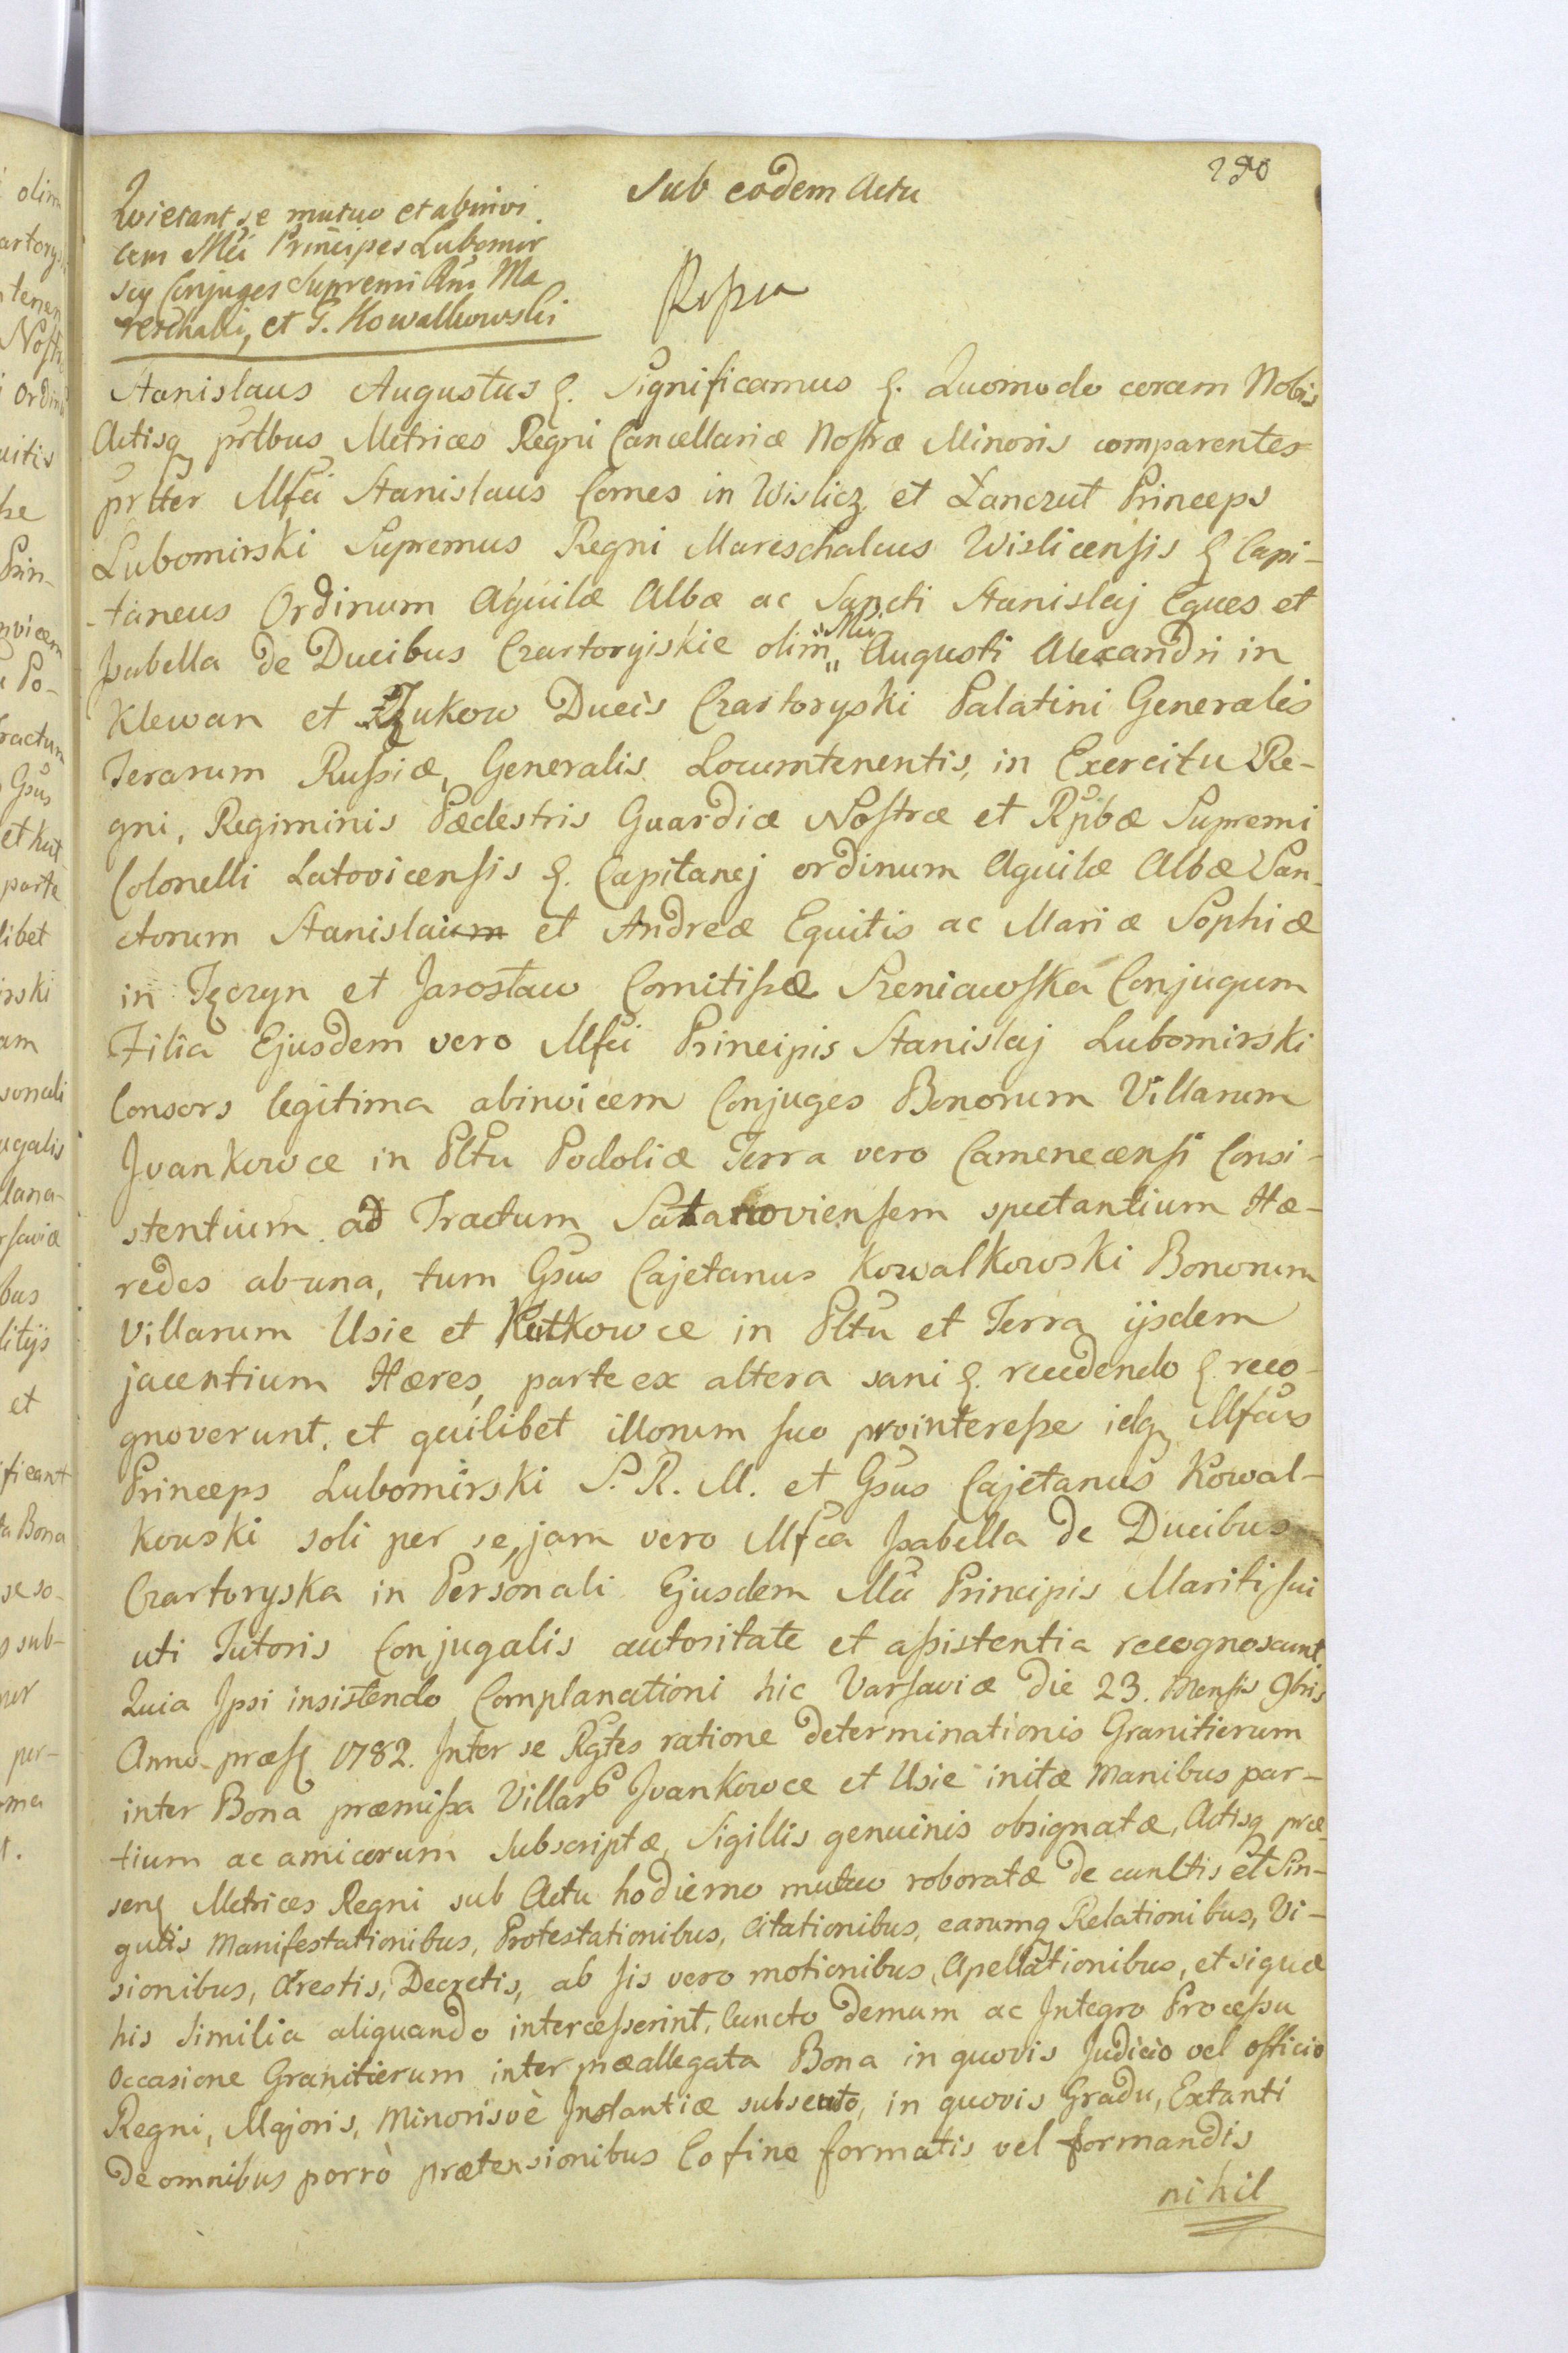 290
Sub eodem Actu
Qvietant se mutuo et abinvi
cem Mci Principes Lubomir
scy Conjuges Supremi Rni Ma
reschalli, et G. Kowalkowski
Stanislaus Augustus &. Significamus &. Quomodo coram Nobis
Actisq prtbus Metrices Regni Cancellariæ Nostræ Minoris comparentes
prtter Mfci Stanislaus Comes in Wislicz et Łanczut Princeps
Lubomirski Supremus Regni Mareschalcus Wislicensis & Capi-
-taneus Ordinum Aquilæ Albæ ac Sancti Stanislaj Eques et
Isabella de Ducibus Czartoryiskie olim „Mci„ Augusti Alexandri in
Klewan et Zukow Ducis Czartoryski Palatini Generalis
Terarum Russiæ, Generalis Locumtenentis, in Exercitu Re-
gni, Regiminis Pædestris Guardiæ Nostræ et Rpbæ Supremi
Colonelli Latovicensis &. Capitanej ordinum Aquilæ Albæ San-
ctorum Stanislai et Andreæ Equitis ac Mariæ Sophiæ
in Tęczyn et Jarosław Comitissæ Sieniawska Conjugum
Filia Ejusdem vero Mfci Principis Stanislaj Lubomirski
Consors legitima abinvicem Conjuges Bonorum Villarum
Jvankowce in Pltu Podoliæ Terra vero Camenecensi Consi-
stentium ad Tractum Satanoviensem spectantium Hæ-
redes ab-una, tum Gsus Cajetanus Kowalkowski Bonorum
Villarum Usie et Kutkowce in Pltu et Terra ijsdem
jacentium Hæres, parte ex altera sani &. recedendo &. reco-
gnoverunt, et quilibet illorum suo prointeresse idq Mfcus
Princeps Lubomirski S. R. M. et Gsus Cajetanus Kowal-
kowski soli per se, jam vero Mfca Isabella de Ducibus
Czartoryska in Personali Ejusdem Mci Principis Mariti sui
uti Tutoris Conjugalis autoritate et assistentia recognoscunt.
Quia Ipsi insistendo Complanationi hic Varsaviæ die 23. Mensis 9bris
Anno præs 1782. Inter se Rgtes ratione determinationis Granitierum
inter Bona præmissa Villar Jvankowce et Usie initæ Manibus par-
tium ac amicorum subscriptæ, Sigillis genuinis obsignatæ, Actisq præ
sen Metrices Regni sub Actu hodierno mutuo roboratæ de cunctis et Sin-
gulis Manifestationibus, Protestationibus, Citationibus, earumq Relationibus, Vi-
sionibus, Arestis, Decretis, ab jis vero motionibus, Apellationibus, et siquæ
his Similia aliquando intercesserint. Cuncto demum ac Integro Processu
occasione Granitierum inter præallegata Bona in quovis Judicio vel officio
Regni, Majoris, Minorisvè Instantiæ subsecuto, in quovis Gradu, Extanti
De omnibus porrò prætensionibus Eo fine formatis vel formandis
nihil